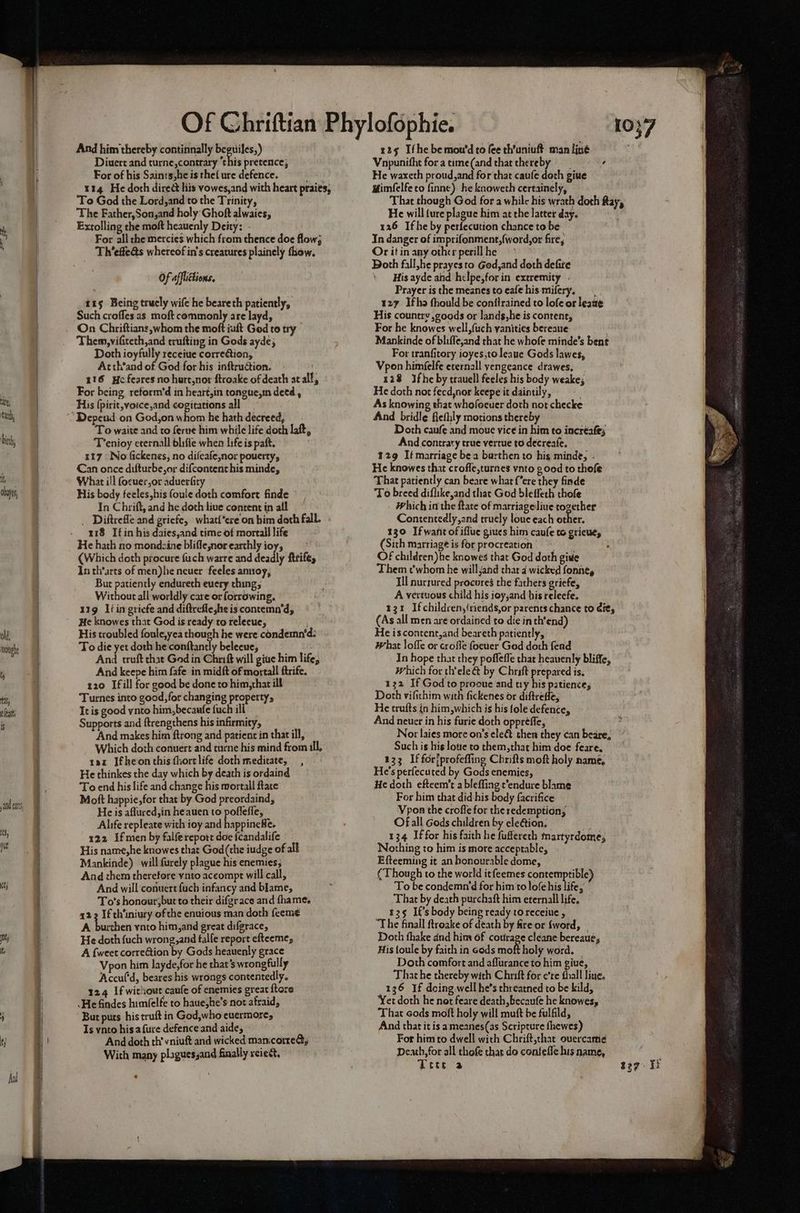 Of Chriſtian Phyloſophie.
1037
And him thereby continnally beguiles,)
Diuert and turne,contrary this pretence;
For of his Saints,he is theſure defence.
114 He doth direct his vowes,and with heart praies,
To God the Lord,and to the Trinity,
The Father,Son,and holy Ghoſt alwaies,
Extolling the moſt heauenly Deity:
For all the mercies which from thence doe flow;
Th'effects whereof in's creatures plainely ſhow.
Of afflictions.
115 Being truely wiſe he beareth patiently,
Such croſſes as moſt commonly are layd,
On Chriſtians,whom the moſt iuſt God to try
Them,viſiteth,and truſting in Gods ayde,
Doth ioyfully receiue correction,
At th'and of God for his inſtruction.
116 He feares no hurt,nor ſtroake of death at all,
For being reform'd in heart,in tongue,in deed,
His ſpirit,voice,and cogitations all
Depend on God,on whom he hath decreed,
To waite and to ſerue him while life doth laſt,
T'enioy eternall bliſſe when life is paſt.
117 No ſickenes, no diſeaſe,nor pouerty,
Can once diſturbe,or diſcontent his minde,
What ill ſocuer,or aduerſity
His body feeles,his ſoule doth comfort finde
In Chriſt, and he doth liue content in all
Diſtreſſe and griefe, whatſ'ere on him doth fall.
118 If in his daies,and time of mortall life
He hath no mondaine bliſſe,nor earthly ioy,
(Which doth procure ſuch warre and deadly ſtrife,
In th'arts of men)he neuer feeles annoy,
But patiently endureth euery thing,
Without all worldly care or ſorrowing.
119 If in griefe and diſtreſſe,he is contemn'd,
He knowes that God is ready to releeue,
His troubled ſoule,yea though he were condemn'd:
To die yet doth he conſtantly beleeue,
And truſt that God in Chriſt will giue him life,
And keepe him ſafe in midſt of mortall ſtrife.
120 If ill for good be done to him,that ill
Turnes into good,for changing property,
It is good vnto him,becauſe ſuch ill
Supports and ſtrengthens his infirmity,
And makes him ſtrong and patient in that ill,
Which doth conuert and turne his mind from ill.
121 If he on this ſhort life doth meditate,
He thinkes the day which by death is ordaind
To end his life and change his mortall ſtate
Moſt happie,for that by God preordaind,
He is aſſured,in heauen to poſſeſſe,
A life repleate with ioy and happineſſe.
122 If men by falſe report doe ſcandaliſe
His name,he knowes that God(the iudge of all
Mankinde) will ſurely plague his enemies,
And them therefore vnto accompt will call,
And will conuert ſuch infancy and blame,
To's honour,but to their diſgrace and ſhame.
123 If th'iniury of the enuious man doth ſeeme
A burthen vnto him,and great diſgrace,
He doth ſuch wrong,and falſe report eſteeme,
A ſweet correction by Gods heauenly grace
Vpon him layde,for he that's wrongfully
Accuſ'd, beares his wrongs contentedly.
124 If without cauſe of enemies great ſtore
He findes himſelfe to haue,he's not afraid,
But puts his truſt in God,who euermore,
Is vnto his a ſure defence and aide,
And doth th'vniuſt and wicked man correct,
With many plagues,and finally reiect.
125 If he be mou'd to ſee th'uniuſt man liue
Vnpuniſht for a time(and that thereby
He waxeth proud,and for that cauſe doth giue
Himſelfe to ſinne) he knoweth certainely,
That though God for a while his wrath doth ſtay,
He will ſure plague him at the latter day.
126 If he by perſecution chance to be
In danger of impriſonment,ſword,or fire,
Or if in any other perill he
Doth fall,he prayes to God,and doth deſire
His ayde and helpe,for in extremity
Prayer is the meanes to eaſe his miſery.
127 If he ſhould be conſtrained to loſe or leaue
His country,goods or lands,he is content,
For he knowes well,ſuch vanities bereaue
Mankinde of bliſſe,and that he whoſe minde's bent
For tranſitory ioyes,to leaue Gods lawes,
Vpon himſelfe eternall vengeance drawes.
128 If he by trauell feeles his body weake,
He doth not feed,nor keepe it daintily,
As knowing that whoſoeuer doth not checke
And bridle fleſhly motions thereby
Doth cauſe and moue vice in him to increaſe,
And contrary true vertue to decreaſe.
129 If marriage be a burthen to his minde,
He knowes that croſſe,turnes vnto good to thoſe
That patiently can beare what ſ'ere they finde
To breed diſlike,and that God bleſſeth thoſe
Which in the ſtate of marriage liue together
Contentedly,and truely loue each other.
130 If want of iſſue giues him cauſe to grieue,
(Sith marriage is for procreation
Of children)he knowes that God doth giue
Them t'whom he will,and that a wicked ſonne,
Ill nurtured procures the fathers griefe,
A vertuous child his ioy,and his releefe.
131 If children,friends,or parents chance to die,
(As all men are ordained to die in th'end)
He is content,and beareth patiently,
What loſſe or croſſe ſoeuer God doth ſend
In hope that they poſſeſſe that heauenly bliſſe,
Which for th'elect by Chriſt prepared is.
132 If God to prooue and try his patience,
Doth viſit him with ſickenes or diſtreſſe,
He truſts in him,which is his ſole defence,
And neuer in his furie doth oppreſſe,
Nor laies more on's elect then they can beare,
Such is his loue to them,that him doe feare.
133 If for profeſſing Chriſts moſt holy name,
He's perſecuted by Gods enemies,
He doth eſteem't a bleſſing t'endure blame
For him that did his body ſacrifice
Vpon the croſſe for the redemption,
Of all Gods children by election.
134 If for his faith he ſuffereth martyrdome,
Nothing to him is more acceptable,
Eſteeming it an honourable dome,
(Though to the world it ſeemes contemptible)
To be condemn'd for him to loſe his life,
That by death purchaſt him eternall life.
135 If's body being ready to receiue,
The finall ſtroake of death by fire or ſword,
Doth ſhake and him of courage cleane bereaue,
His ſoule by faith in Gods moſt holy word,
Doth comfort and aſſurance to him giue,
That he thereby with Chriſt for e're ſhall liue.
136 If doing well he's threatned to be kild,
Yet doth he not feare death,becauſe he knowes,
That Gods moſt holy will muſt be fulfild,
And that it is a meanes(as Scripture ſhewes)
For him to dwell with Chriſt,that ouercame
Death,for all thoſe that do confeſſe his name,
Tttt 2
137 If